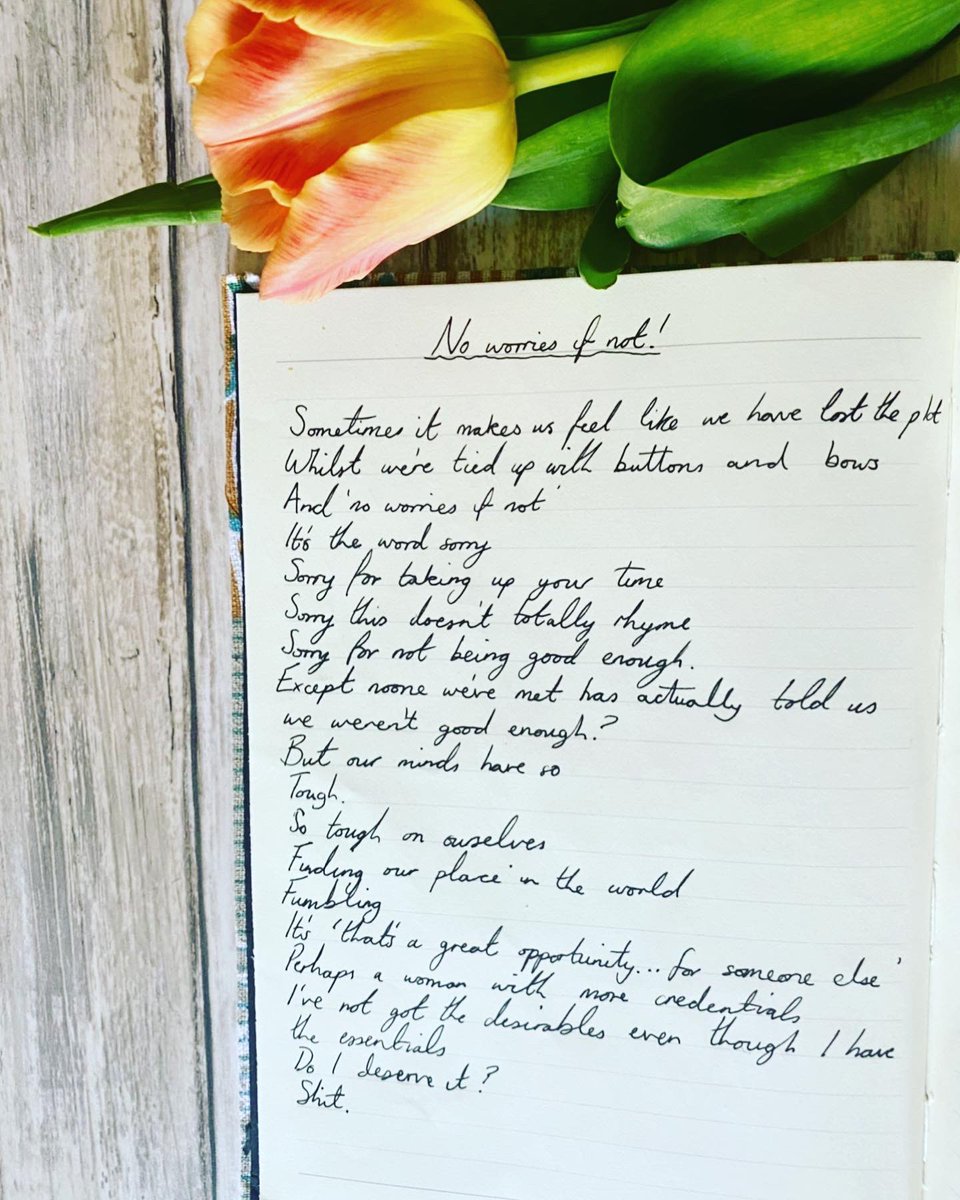 No worries if not!
Sometimes it makes us feel like we have lost the plot
Whilst we're tied up with buttons and bows
And 'no worries if not'
It's the word sorry
Sorry for taking up your time
Sorry this doesn't totally rhyme
Sorry for not being good enough.
Except noone we've met has actually told us
we weren't good enough?
But our minds have so
Tough.
So tough on ourselves
Finding our place in the world
Fumbling
It's 'that's a great opportunity... for someone else'
Perhaps a woman with more credentials
I've not got the desirables even though I have
the essentials
Do I deserve it?
Shit.